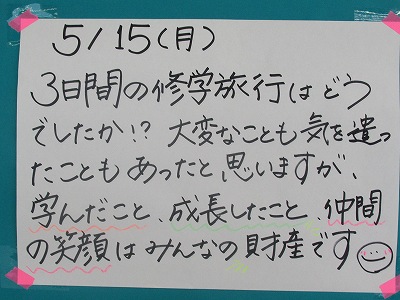 5/15(月)
3日間の修学旅行はどう
でしたか!? 大変なことも気を遣っ
たこともあったと思いますが、
学んだこと、成長したこと、仲間
の笑顔はみんなの財産です